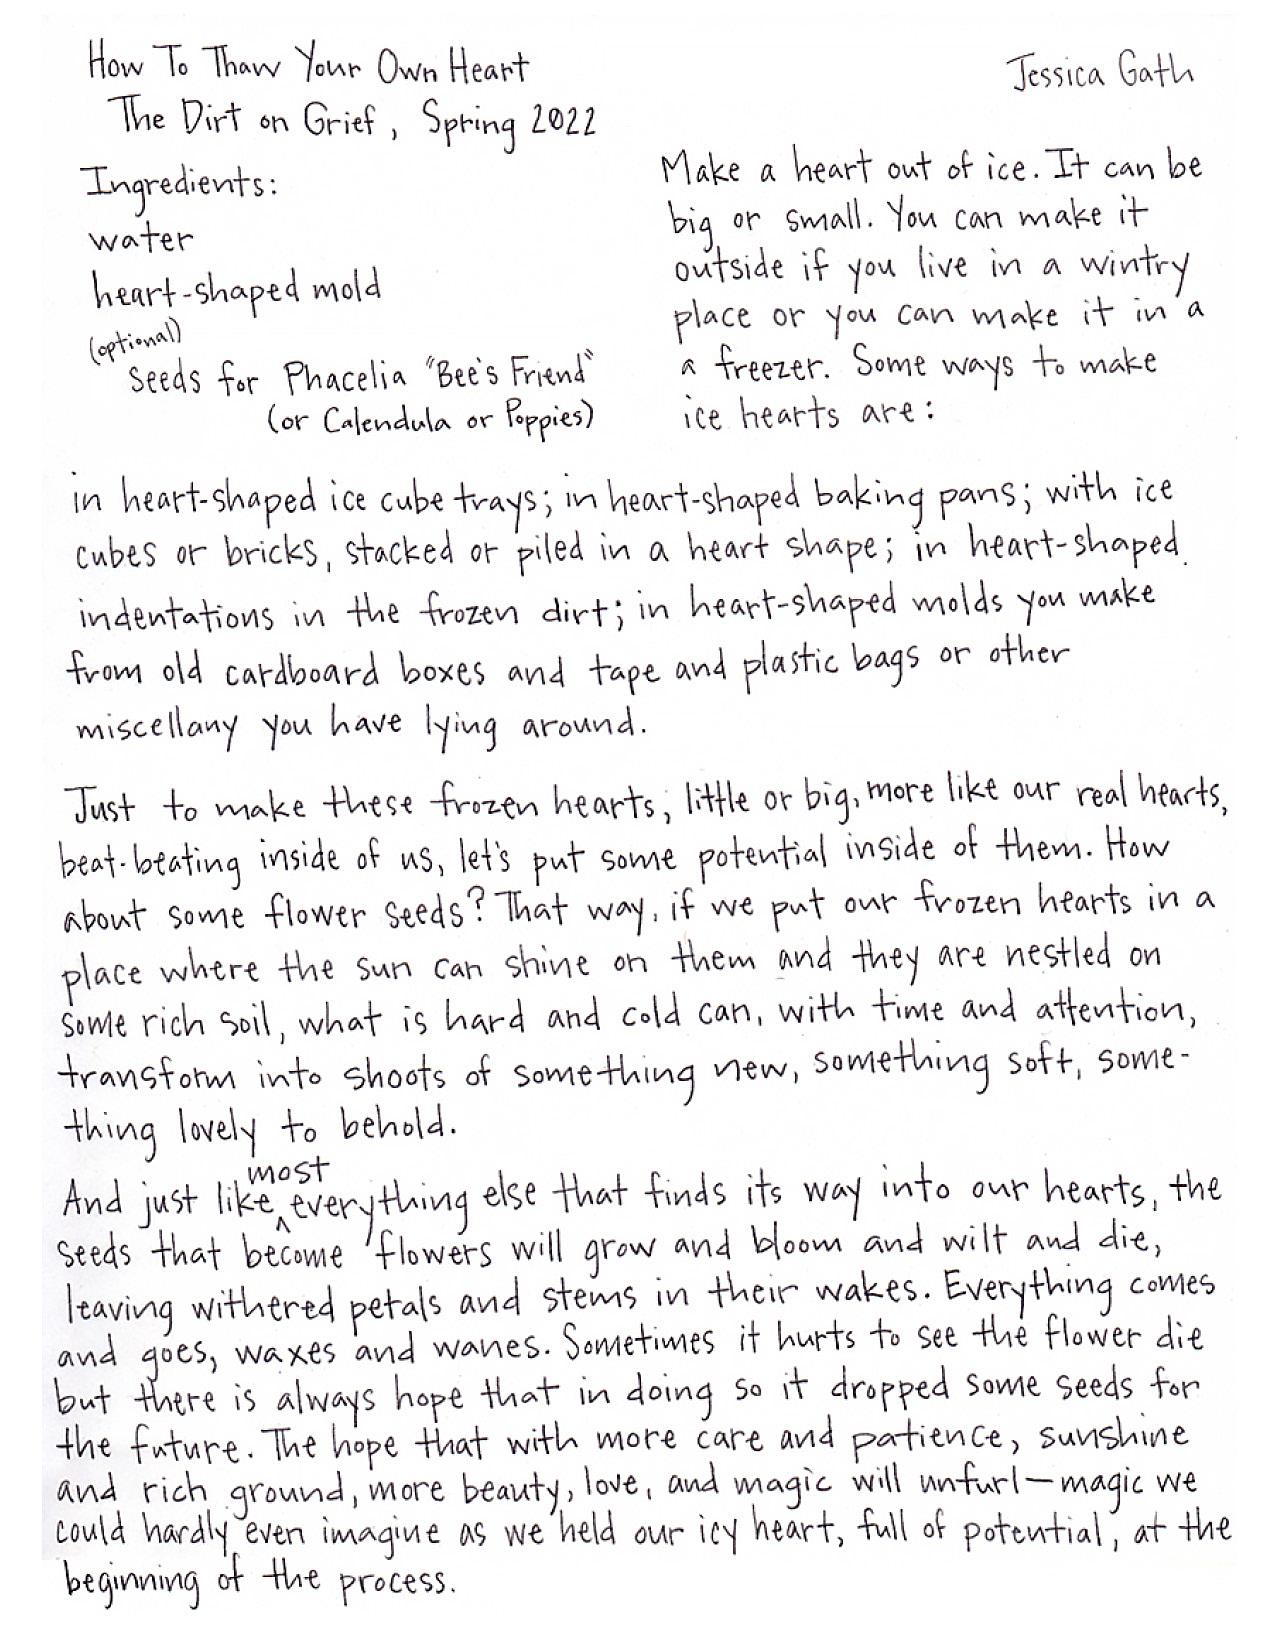 How To Thaw Your Own Heart
Jessica Gath
The Dirt on Grief, Spring 2022
Ingredients:
water
heart-shaped mold
(optional)
Seeds for Phacelia "Bee's Friend"
(or Calendula or Poppies)
Make a heart out of ice. It can be
big or small. You can make it
outside if you live in a wintry
place or you can make it in a
a freezer. Some ways to make
ice hearts are:
in heart-shaped ice cube trays; in heart-shaped baking pans; with ice
cubes or bricks, stacked or piled in a heart shape; in heart-shaped
indentations in the frozen dirt; in heart-shaped molds you make
from old cardboard boxes and tape and plastic bags or other
miscellany you have lying around.
Just to make these frozen hearts, little or big, more like our real hearts,
beat-beating inside of us, let's put some potential inside of them. How
about some flower seeds? That way, if we put our frozen hearts in a
place where the sun can shine on them and they are nestled on
some rich soil, what is hard and cold can, with time and attention,
transform into shoots of something new, something soft, some-
thing lovely to behold.
And just like most everything else that finds its way into our hearts, the
seeds that become flowers will grow and bloom and wilt and die,
leaving withered petals and stems in their wakes. Everything comes
and goes, waxes and wanes. Sometimes it hurts to see the flower die
but there is always hope that in doing so it dropped some seeds for
the future. The hope that with more care and patience, sunshine
and rich ground, more beauty, love, and magic will unfurl—magic we
could hardly even imagine as we held our icy heart, full of potential, at the
beginning of the process.